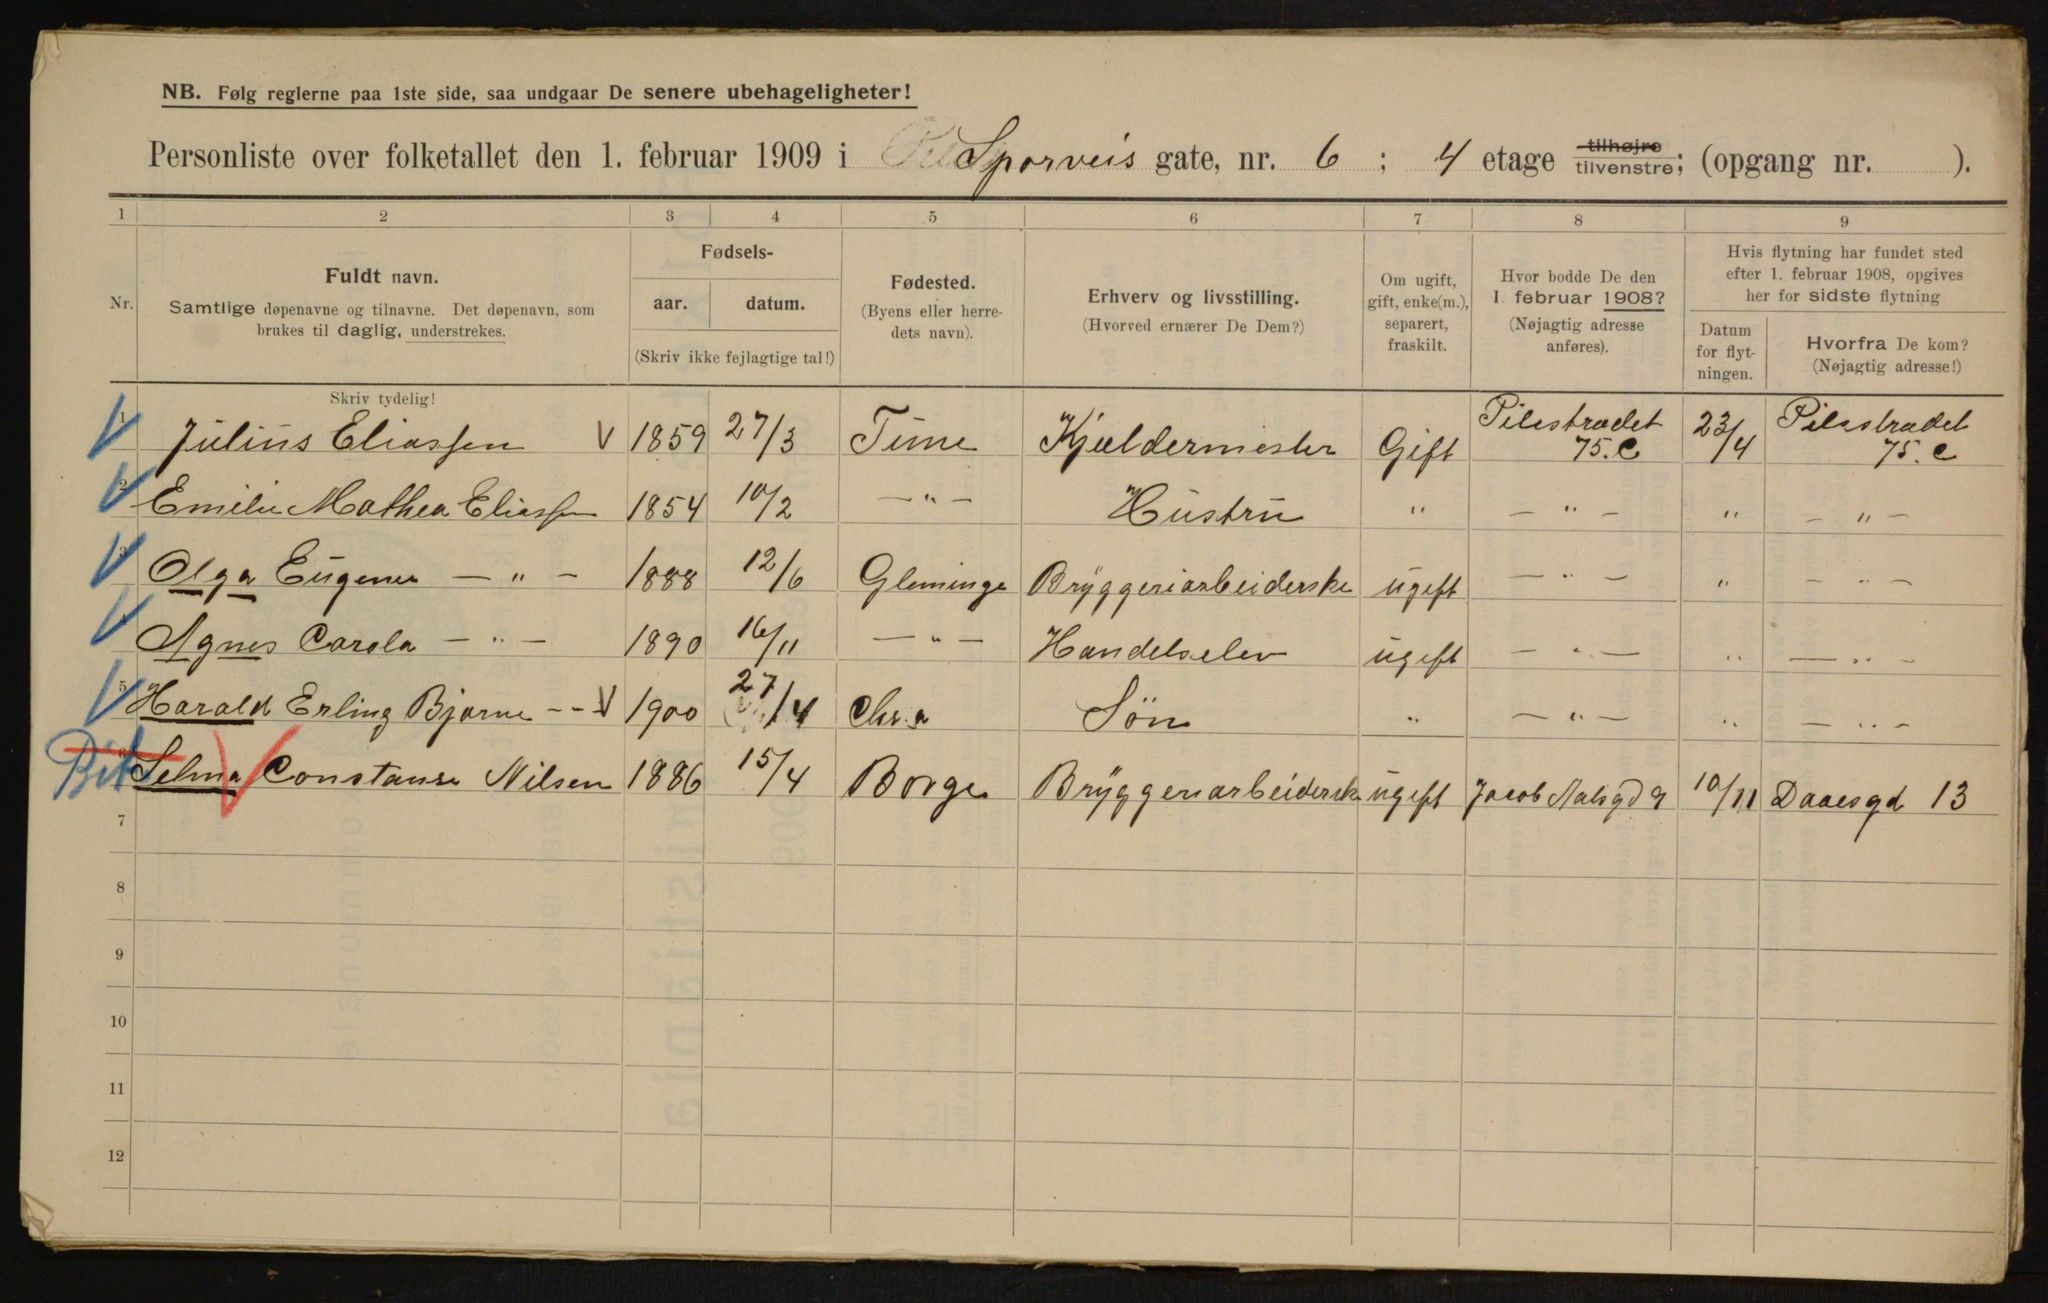 NB. Følg reglerne paa 1ste side, saa undgaar De senere ubehageligheter!
Personliste over folketallet den 1. februar 1909 i Sporveis gate, nr. 6 ; 4 etage tilhøjre tilvenstre; (opgang nr. ).
1 2 3 4 5 6 7 8 9
Nr. Fuldt navn. Samtlige døpenavne og tilnavne. Det døpenavn, som brukes til daglig, understrekes.
Fødsels- aar. datum. (Skriv ikke fejlagtige tal!)
Fødested. (Byens eller herredets navn).
Erhverv og livsstilling. (Hvorved ernærer De Dem?)
Om ugift, gift, enke(m.), separert, fraskilt.
Hvor bodde De den 1 februar 1908? (Nøjagtig adresse anføres).
Hvis flytning har fundet sted efter 1. februar 1908, opgives her for sidste flytning
Datum for flytningen. Hvorfra De kom? (Nøjagtig adresse!)
Skriv tydelig!
1 Julius Eliassen V 1859 27/3 Tune Kjældermester Gift Pilestrædet 75.C 23/4 Pilestrædet 75.C
2 Emilie Mathea Eliassen 1854 10/2 — " — Hustru " — " — " — " —
3 Olga Eugenie — " — 1888 12/6 Gleminge Bryggeriarbeiderske ugift — " — " — " —
4 Agnes Carola — " — 1890 16/11 — " — Handelselev ugift — " — " — " —
5 Harald Erling Bjarne - - V 1900 27/4 Chr.a Søn " — " — " — " —
Bit 6 Selma Constanse Nilsen 1886 15/4 Borge Bryggeriarbeiderske ugift Jacob Aalsgd 9 10/11 Daaesgd 13
7
8
9
10
11
12